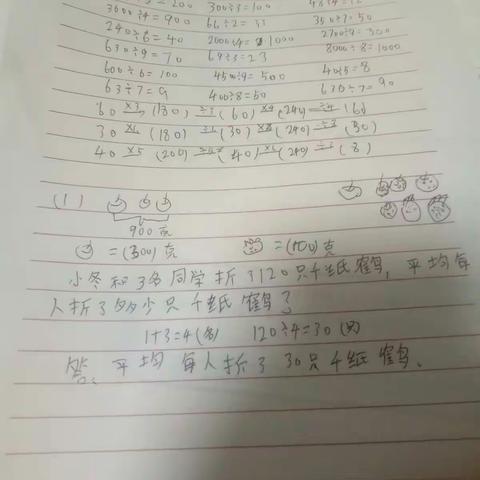 3600÷4=900 300÷3=100
240÷6=40 2000÷4=1000 350÷7=50
630÷9=70 69÷3=23 8000÷8=1000
600÷6=100 4500÷9=500 40÷5=8
63÷7=9 400÷8=50 630÷7=90
30 ×6 (180) (30) ×8 (240) (30)
40 ×5 (200) (40) ×6 (240) (8)
(1)
900克
=(300)克 =(100)克
小冬和3名同学折了120只千纸鹤,平均每
人折了多少只千纸鹤?
1+3=4(名) 120÷4=30(只)
答:平均每人折了30只千纸鹤。